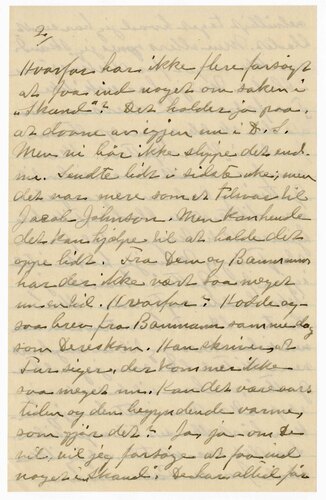 2.
Hvorfor har ikke flere forsøgt
at faa ind noget om saken i
"Skand"? Det holder jo paa
at doovne av igjen nu i D. S.
Men vi bør ikke slippe det end-
nu. Sendte lidt i sidste uke; men
det var mere som et tilsvar til
Jacob Johnson. Men kanhende
det kan hjælpe til at holde det
oppe lidt. Fra Dem og Baumann
har der ikke vært saa meget
nu en tid. Hvorfor? Hadde og-
saa brev fra Baumann samme dag
som Deres kom. Han skriver, at
siger, der kommer ikke
saa meget nu. Kan det være vaars
tiden og den begyndende varme,
som gjør det? Ja, ja - om De
vil, vil jeg forsøge at faa ind
noget i Skand. De har altid før